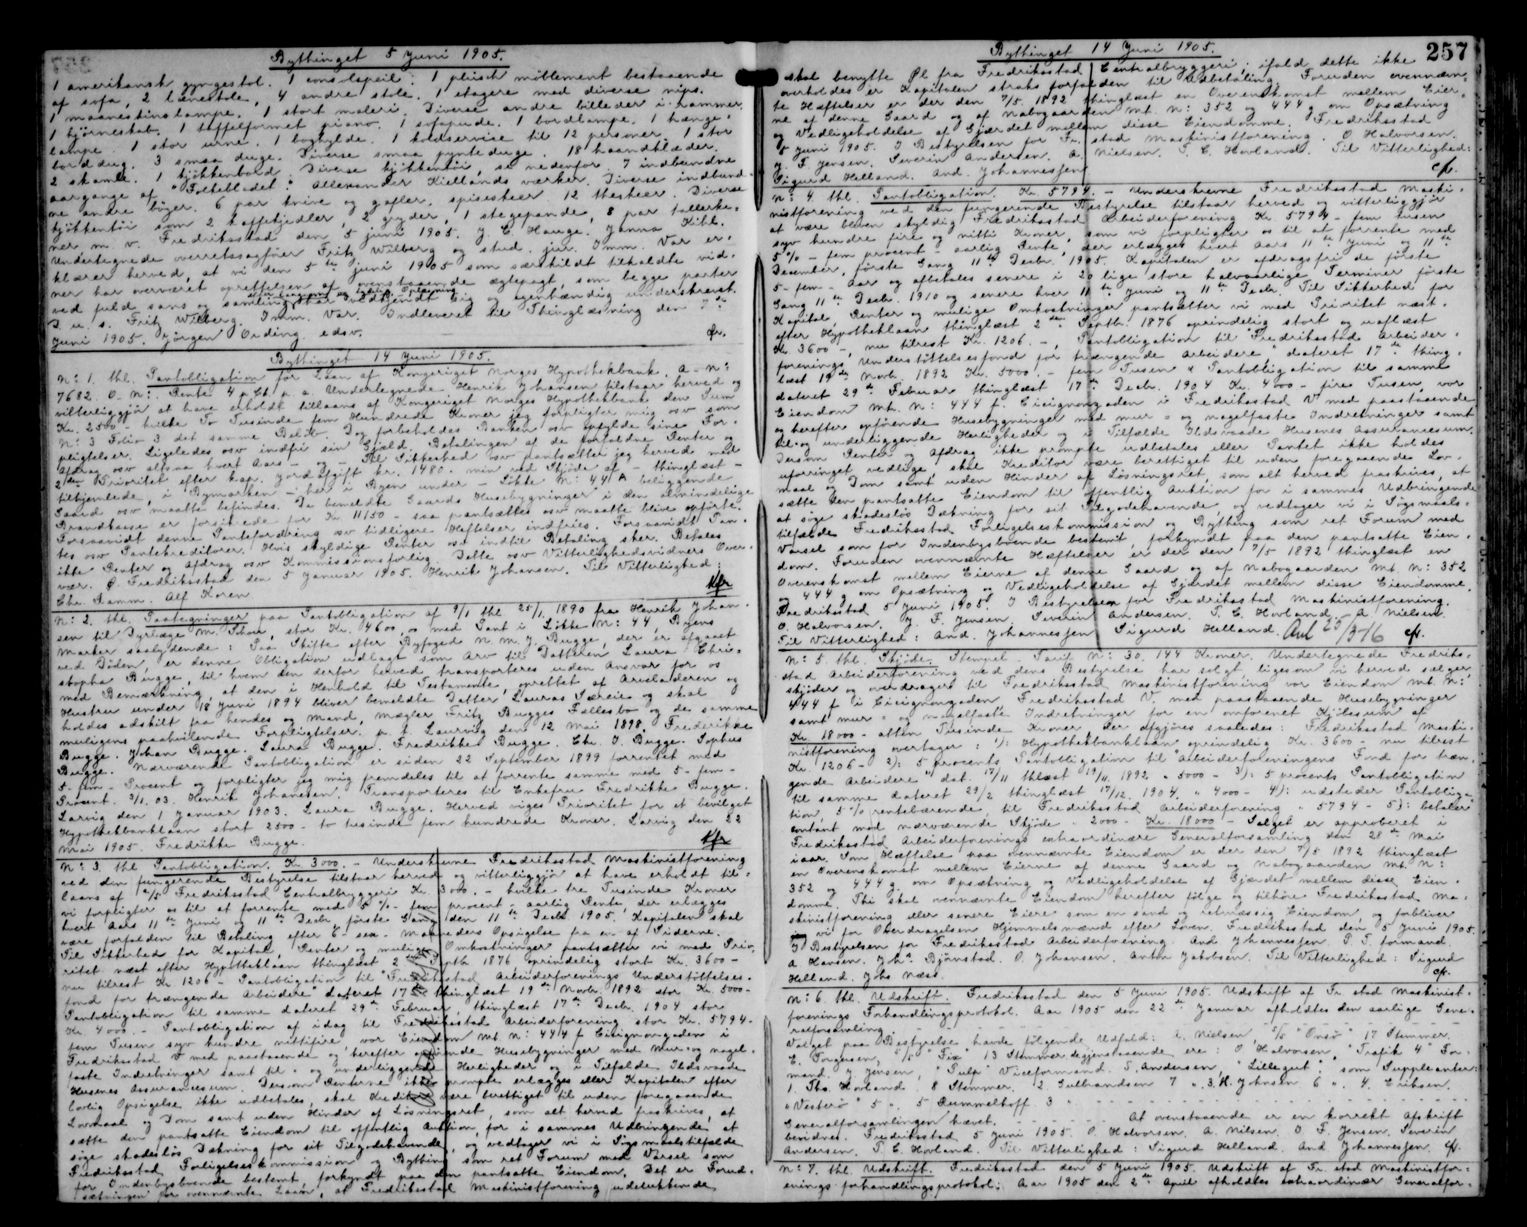 Bythinget 5 Juni 1905.
1 amerikansk gyngestol. 1 consolspeil. 1 plüsch møblement bestaaende
af sofa, 2 lænestole, 4 andre stole. 1 etagere med diverse nips.
1 maaneskinslampe. 1 stort maleri. Diverse andre billeder i rammer.
1 hjørneskab. 1 taffelformet piano. 1 sofapude. 1 bordlampe. 1 hænge-
lampe. 1 stor urne. 1 boghylde. 1 koldservise til 12 personer. 1 stor
bord dug. 3 smaa duge. Diverse smaa pynteduge. 18 haandklæder.
2 skamler. 1 kjøkkenbord. Diverse kjøkkentøi, se nedenfor. 7 indbundne
aargange af "Folkebladet". Allexander Kiellands værker. Diverse indbund-
ne andre bøger. 6 par knive og gafler, spiseskeer 12 theskeer. Diverse
kjøkkentøi som 2 kaffekjedler 2 gryder, 1 stegepande, 8 par tallerke-
ner m. v. Fredriksstad den 5 juni 1905. J. C. Hauge. Janna Kihl.
Undertegnede overretssagfører Fritz Wilberg og stud. jur. Imm. Var er-
klærer herved, at vi den 5te juni 1905 som særskildt tilkaldte vid-
ner har overværet oprettelsen af ovenstaaende ægtepagt, som begge parter
ved fuld sans og samling har vedkjendt sig og egenhændig underskrevet.
D. u. s. Fritz Wilberg. Imm. Var. Indleveret til Thinglæsning den 7de
Juni 1905. Jørgen Ording edsv.
Bythinget 14 Juni 1905.
N: 1. thl. Pantobligation for Laan af Kongeriget Norges Hypothekbank. A - N:
7682. O - N:. Rente 4 pCt p. a. Undertegnede Henrik Johansen tilstaar herved og
vitterliggjør at have erholdt tillaans af Kongeriget Norges Hypothekbank den Sum
Kr. 2500 - hvilke To Tusinde fem Hundrede Kroner jeg forpligter mig osv som
N: 3 Folio 3 det samme Beløb. Dog forbeholdes Banken osv opfylde sine For-
pligtelser. Ligeledes osv indfri sin Gjæld. Betalingen af de forfaldne Renter og
Afdrag osv altsaa hvert Aars - og Til Sikkerhed osv pantsætter jeg herved med
2den Prioritet efter kap. jordafgift kr. 1480. min ved Skjøde af - thinglæst -
tilhjemlede, i "Bymarken" her i Byen under - Løkke N: 44 A beliggende
Gaard osv maatte befindes. Da bemeldte Gaards Husebygninger i den almindelige
Brandkasse er forsikrede for Kr. 11150 - saa pantsættes osv maatte blive opførte.
Forsaavidt denne Pantefordring osv tidligere Hæftelser indfries. Forsaavidt Pan-
tes osv Pantekreditorer. Hvis skyldige Renter osv indtil Betaling sker. Betales
ikke Renter og Afdrag osv Kommissionsforlig. Dette osv Vitterlighedsvidners Over-
vær. Ø. Fredriksstad den 5 Januar 1905. Henrik Johansen. Til Vitterlighed:
Chr. Damm. Alf Koren
N: 2. thl. Paategninger paa Pantobligation af 9/1 thl 25/1 1890 fra Henrik Johan-
sen til Dyrlæge M. Schou, stor Kr. 4600 - med Pant i Løkke N: 44, Byens
Marker saalydende: Paa Skifte efter Byfoged N. M. J. Bugge, der er afgaaet
ved Døden, er denne Obligation udlagt som Arv til Datteren Laura Chri-
stopha Bugge, til hvem den derfor herved transporteres uden Ansvar for os
med Bemærkning, at den i Henhold til Testamente, oprettet af Arveladeren og
Hustru under 18 Juni 1894 bliver bemeldte Datter Lauras Særeie og skal
holdes adskilt fra hendes og Mand, Mægler Fritz Bugges Fællesbo og de samme
muligens paahvilende Forpligtelser. p. t. Laurvig den 12 Mai 1898 Frederikke
Bugge. Johan Bugge. Laura Bugge. Fredrikke Bugge. Chr. J. Bugge. Sophus
Bugge. Nærværende Pantobligation er siden 22 September 1899 forrentet med
5 - fem - Procent og forpligter jeg mig fremdeles til at forrente samme med 5 - fem -
Procent. 2/1.03. Henrik Johansen. Transporteres til Enkefru Fredrikke Bugge.
Larvig den 1 Januar 1903. Laura Bugge. Herved viges Prioritet for et bevilget
Hypothekbanklaan stort 2500 - to tusinde fem hundrede Kroner. Larvig den 22
Mai 1905. Fredrikke Bugge.
N: 3. thl Pantobligation. Kr. 3000. - Underskrevne Fredriksstad Maskinistforening
ved den fungerende Bestyrelse tilstaar herved og vitterliggjør at have erholdt til-
laans af Fredriksstad Centralbryggeri Kr. 3000. - hvilke tre Tusinde Kroner
vi forpligter os til at forrente med 5 % - fem procent - aarlig Rente, der erlægges
hvert Aars 11te Juni og 11te Decbr. første Gang den 11te Decbr. 1905. Kapitalen skal
være forfalden til Betaling efter 6 - sex - Maaneders Opsigelse fra en af Siderne.
Til Sikkerhed for Kapital, Renter og mulige Omkostninger pantsætter vi med Prio-
ritet næst efter Hypotheklaan thinglæst 2 Septh 1876 oprindelig stort Kr. 3600 -
nu tilrest Kr 1206 - Pantobligation til "Fredriksstad Arbeiderforenings Understøttelses-
fond for trængende Arbeidere" dateret 17 thinglæst 19de Novbr. 1892 stor Kr. 5000 -
Pantobligation til samme dateret 29de Februar, thinglæst 17de Decbr. 1904 stor
Kr. 4000. - Pantobligation af idag til Fredriksstad Arbeiderforening stor Kr. 5794.
fem Tusen syv hundre nittifire, vor Eiendom Mt N: 444 f Cicignongaden i
Fredriksstad V med paastaaende og herefter opførende Husebygninger med Mur- og nagel-
faste Indretninger samt til- og underliggende Herligheder og i Tilfælde Ildsvaade
Husenes Assurancesum. Dersom Renterne ikke prompte erlægges eller Kapitalen efter
lovlig Opsigelse ikke udbetales, skal Kreditor være berettiget til uden foregaaende
Lovmaal og Dom samt uden Hinder af Løsningsret, som alt herved fraskrives, at
sætte den pantsatte Eiendom til offentlig Auktion, for i sammes Udbringende at
søge skadesløs Dækning for sit Tilgodehavende, og vedtager vi i Søgsmaalstilfælde
Fredriksstad Forligelseskommission og Bything som ret Forum med Varsel som
for Indenbysboende bestemt, forkyndt paa den pantsatte Eiendom. Det er Forud-
sætningen for ovennævnte Laan, at Fredriksstad Maskinistforening udelukkende
Bythinget 14 Juni 1905.
257
skal benytte Øl fra Fredriksstad Centralbryggeri; ifald dette ikke
overholdes er Kapitalen straks forfalden til Udbetaling. Foruden ovennævn-
te Hæftelser er der den 7/5 1892 thinglæst en Overenskomst mellem Eier-
ne af denne Gaard og af Nabogaarden Mt. N: 352 og 444 g om Opsætning
og Vedligeholdelse af Gjærdet mellem disse Eiendomme. Fredriksstad
5 Juni 1905. I Bestyrelsen for Fr.stad Maskinistforening. O Halvorsen.
J. F. Jensen. Severin Andersen. A. Nielsen. T. C. Hovland. Til Vitterlighed:
Sigurd Helland. And. Johannessen
N: 4. thl. Pantobligation. Kr. 5794. - Underskrevne Fredriksstad Maski-
nistforening ved den fungerende Bestyrelse tilstaar herved og vitterliggjør
at være bleven skyldig Fredriksstad Arbeiderforening Kr. 5794 - fem tusen
syv hundre fire og nitti Kroner, som vi forpligter os til at forrente med
5 % - fem procent - aarlig Rente, der erlægges hvert Aars 11te Juni og 11te
December, første Gang 11te Decbr. 1905. Kapitalen er afdragsfri de første
5 - fem - Aar og afbetales senere i 20 lige store halvaarlige Terminer første
Gang 11te Decbr. 1910 og senere hver 11te Juni og 11te Decbr. Til Sikkerhed for
Kapital, Renter og mulige Omkostninger pantsætter vi med Prioritet næst
efter Hypotheklaan thinglæst 2den Septbr. 1876 oprindelig stort og uaflæst
Kr 3600 -, nu tilrest Kr. 1206. -, Pantobligation til "Fredriksstad Arbeider-
forenings Understøttelsesfond for trængende Arbeidere" dateret 17de thing-
læst 19de Novbr. 1892 Kr. 5000. - fem Tusen & Pantobligation til samme
dateret 29de Februar thinglæst 17de Decbr. 1904 Kr. 4000 - fire Tusen, vor
Eiendom Mt. N: 444 f. Cicignongaden i Fredriksstad V med paastaaende
og herefter opførende Husebygninger med mur- og nagelfaste Indretninger samt
til- og underliggende Herligheder og i Tilfælde Ildsvaade Husenes Assurancesum.
Dersom Renter og Afdrag ikke prompte udbetales eller Pantet ikke holdes
uforringet vedlige, skal Kreditor være berettiget til uden foregaaende Lov-
maal og Dom samt uden Hinder af Løsningsret, som alt herved fraskrives, at
sætte den pantsatte Eiendom til offentlig Auktion for i sammes Udbringende
at søge skadesløs Dækning for sit Tilgodehavende, og vedtager vi i Søgsmaals-
tilfælde Fredriksstad Forligelseskommission og Bything som ret Forum med
Varsel som for Indenbysboende bestemt, forkyndt paa den pantsatte Eien-
dom. Foruden ovennævnte Hæftelser er der den 7/5 1892 thinglæst en
Overenskomst mellem Eierne af denne Gaard og af Nabogaarden Mt. N: 352
og 444 g om Opsætning og Vedligeholdelse af Gjærdet mellem disse Eiendomme.
Fredriksstad 5 Juni 1905. I Bestyrelsen for Fredriksstad Maskinistforening.
O. Halvorsen. J. F. Jensen. Severin Andersen. T. C. Hovland. A Nielsen.
Til Vitterlighed: And. Johannessen Sigurd Helland.
N: 5. thl. Skjøde. Stempel. Taxt N: 30. 144 Kroner. Undertegnede Fredriks-
stad Arbeiderforening ved dens Bestyrelse har solgt ligesom vi herved sælger,
skjøder og overdrager til Fredriksstad Maskinistforening vor Eiendom Mt. N:
444 f i Cicignongaden Fredriksstad V, med paastaaende Husebygninger
samt mur- og nagelfaste Indretninger for en omforenet Kjøbesum af
Kr. 18000 - atten Tusinde Kroner der afgjøres saaledes: Fredriksstad Maski-
nistforening overtager: 1): Hypothekbanklaan oprindelig Kr. 3600 - nu tilrest
Kr. 1206 - 2): 5 procents Pantobligation til "Arbeiderforeningens Fond for træn-
gende Arbeidere" dat. 17/11 thlæst 19/11 1892 " 5000 - 3): 5 procents Pantobligation
til samme dateret 29/2 thinglæst 17/12 1904. " 4000 - 4): udsteder Pantobliga-
tion, 5 % rentebærende til Fredriksstad Arbeiderforening " 5794 - 5): betaler
contant mod nærværende Skjøde - 2000 - Kr. 18000 - Salget er approberet i
Fredriksstad Arbeiderforenings extraordinære Generalforsamling den 28de Mai
iaar. Som Hæftelse paa ovennævnte Eiendom er der den 7/5 1892 thinglæst
en Overenskomst mellem Eierne af denne Gaard og Nabogaarden Mt. N:
352 og 444 g. om Opsætning og Vedligeholdelse af Gjærdet mellem disse Eien-
domme. Thi skal ovennævnte Eiendom herefter følge og tilhøre Fredriksstad Ma-
skinistforening eller senere Eiere som en sand og retmæssig Eiendom, og forbliver
vi for Overdragelsen Hjemmelsmænd efter Loven. Fredriksstad den 5 Juni 1905.
I Bestyrelsen for Fredriksstad Arbeiderforening. And Johannessen. P. T. formand.
A. Hansen. Johs. Bjørnstad. O. Johansen. Anton Jakobsen. Til Vitterlighed: Sigurd
Helland. Johs Næss.
N: 6. thl. Udskrift. Fredriksstad den 5 Juni 1905. Udskrift af Fr.stad Maskinist-
forenings Forhandlingsprotokol. Aar 1905 den 22de Januar afholdtes den aarlige Gene-
ralforsamling.
Valget paa Bestyrelse havde følgende Udfald: A. Nielsen, "Onsø" 17 Stemmer.
E. Torgersen, "Fix" 13 Stemmer. Gjenstaaende ere: O Halvorsen, "Trafik 4" For-
mand, J Jensen, "Pulp" Viceformand, S. Andersen, "Lilleput"; som Suppleanter:
1. Ths. Hovland, 8 Stemmer. 2 Gulbrandsen 7 ". 3. H. Johnsen 6 ". 4. Eriksen,
"Vesterø" 5 ". 5 Rummelhoff 3 ".
Generalforsamlingen hævet. At ovenstaaende er en korrekt Afskrift
bevidnes. Fredriksstad 5 Juni 1905. O Halvorsen. A. Nilsen. J. F. Jensen. Severin
Andersen. T. C. Hovland. Til Vitterlighed: Sigurd Helland. And Johannessen.
N: 7. thl. Udskrift. Fredriksstad den 5 Juni 1905. Udskrift af Fr.stad Maskinistfor-
enings forhandlingsprotokol: Aar 1905 den 2de April afholdtes extraordinær Generalfor-